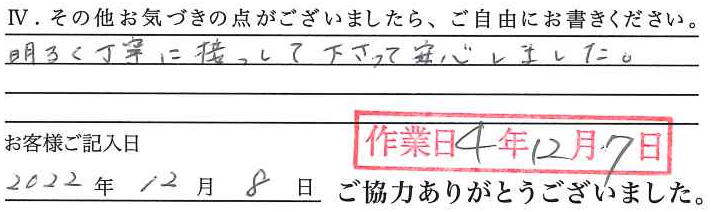 Ⅳ．その他お気づきの点がございましたら、ご自由にお書きください。
明るく丁寧に接っして下さって安心しました。
お客様ご記入日
作業日4年12月7日
2022年12月8日
ご協力ありがとうございました。